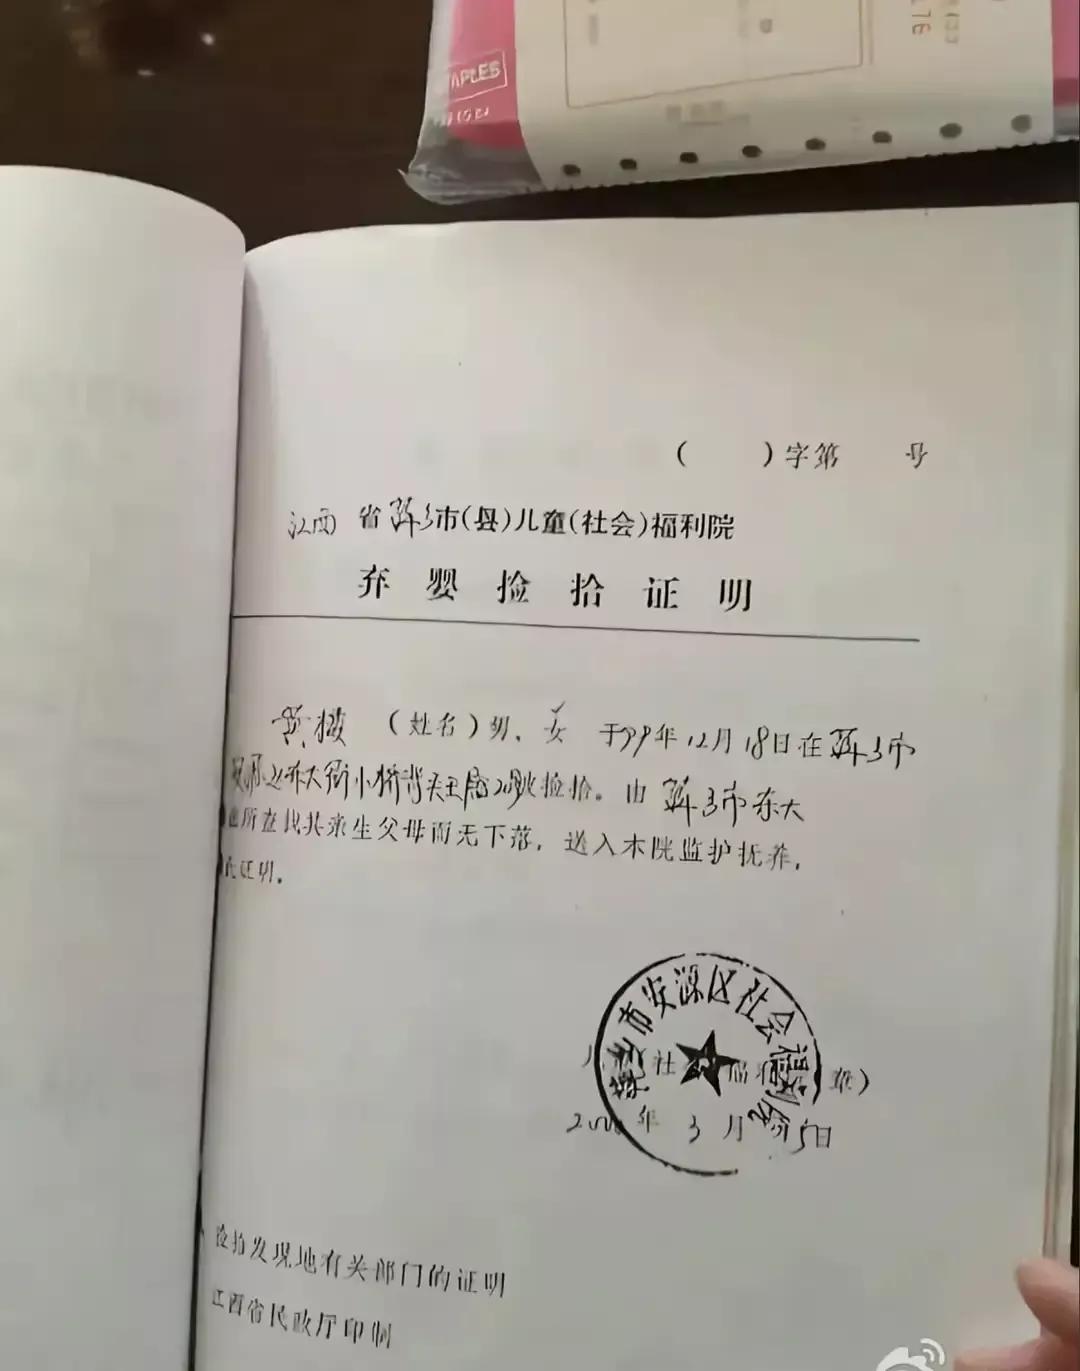 APLES
176
( )字第 号
江西省萍乡市(县)儿童(社会)福利院
弃婴捡拾证明
黄 (姓名)男、女 于99年12月18日在萍乡市
东大街小桥背 捡拾。由 萍乡市东大
所查找其亲生父母而无下落，送入本院监护抚养，
证明。
萍乡市安源区社会福利院
章)
2000年3月 5日
捡拾发现地有关部门的证明
江西省民政厅印制